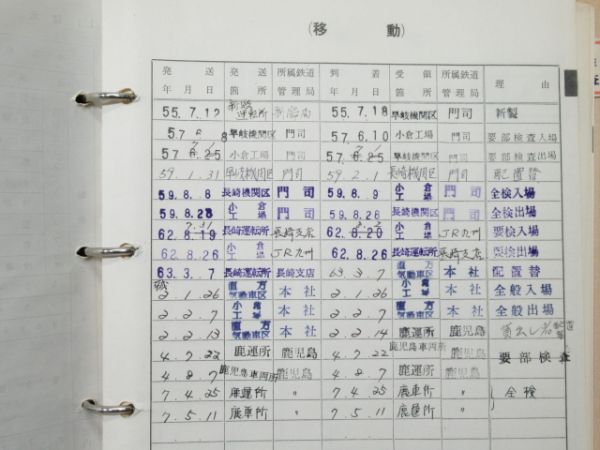 (移 動)
発送 年月日 発送箇所 所属鉄道管理局 到着 年月日 受領箇所 所属鉄道管理局 理由
55.7.12 新潟運転所 新潟局 55.7.18 早岐機関区 門司 新製
57 8 早岐機関区 門司 57.6.10 小倉工場 要部検査入場
57 6.25 小倉工場 57 6.25 早岐機関区 門司 要部検査出場
59.1.31 早岐機関区 門司 59.2.1 長崎機関区 門司 配置替
59.8.8 長崎機関区 門司 59.8.9 小倉工場 全検入場
59.8.28 小倉工場 59.8.26 長崎機関区 門司 全検出場
62.8.19 長崎運転所 長崎支店 62.8.20 小倉工場 JR九州 要検入場
62.8.26 小倉工場 JR九州 62.8.26 長崎運転所 長崎支店 要検出場
63.3.7 長崎運転所 長崎支店 63.3.7 直方気動車区 本社 配置替
2.1.26 直方気動車区 本社 2.1.26 小倉工場 本社 全般入場
2.2.7 小倉工場 本社 2.2.7 直方気動車区 本社 全般出場
2.2.13 直方気動車区 本社 2.2.14 鹿運所 鹿児島
4.7.22 鹿運所 鹿児島 4.7.22 鹿児島車両所 鹿児島 要部検査
4.8.7 鹿児島車両所 鹿児島 4.8.7 鹿運所 鹿児島
7.4.25 鹿運所 〃 7.4.25 鹿車所 〃 全検
7.5.11 鹿車所 〃 7.5.11 鹿運所 〃